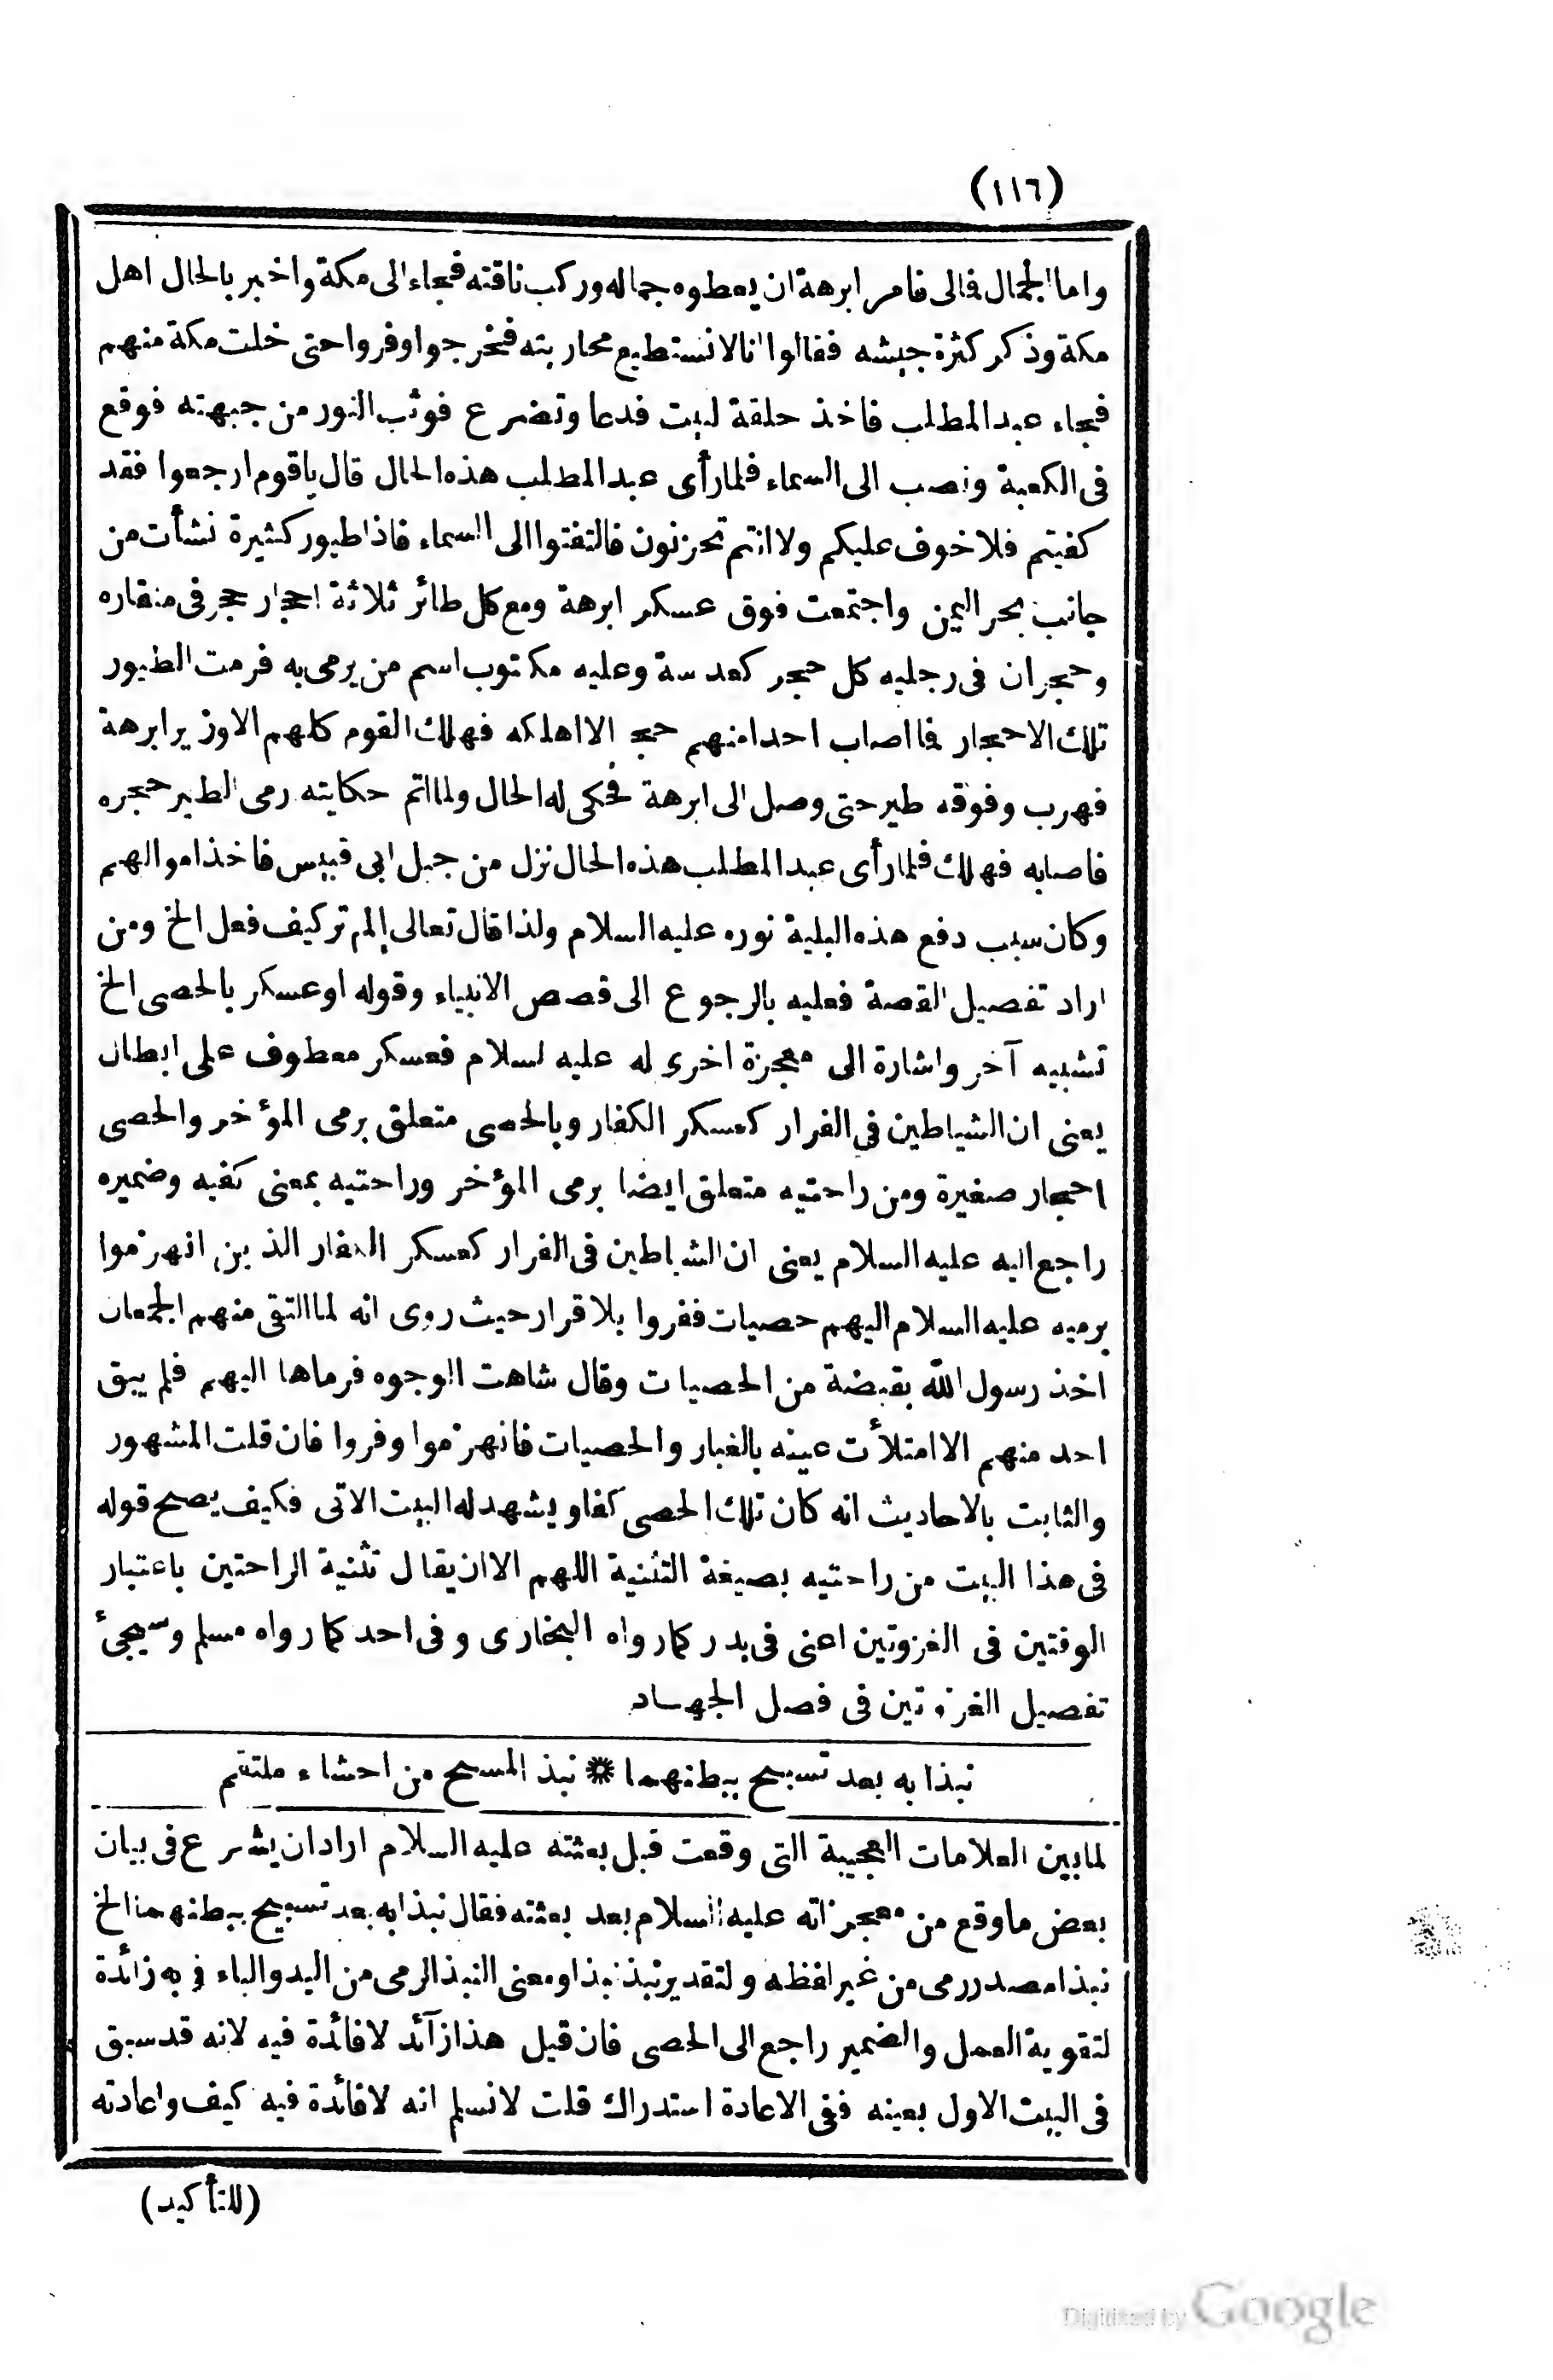 (١١٦)
واما الجمال فالى فامر ابرهة ان يعطوه جماله وركب ناقته فجاء الى مكة واخبر بالحال اهل
مكة وذكر كثرة جيشه فقالوا انا لا نستطيع محاربته فخرجوا وفروا حتى خلت مكة منهم
فجاء عبد المطلب فاخذ حلقة لبيت فدعا وتضرع فوثب النور من جبهته فوقع
فى الكعبة ونصب الى السماء فلما رأى عبد المطلب هذه الحال قال يا قوم ارجعوا فقد
كفيتم فلا خوف عليكم ولا انتم تحزنون فالتفتوا الى السماء فاذا طيور كثيرة نشأت من
جانب بحر اليمن واجتمعت فوق عسكر ابرهة ومع كل طائر ثلاثة احجار حجر فى منقاره
وحجران فى رجليه كل حجر كعدسة وعليه مكتوب اسم من يرمى به فرمت الطيور
تلك الاحجار فما اصاب احدا منهم حجر الا اهلكه فهلك القوم كلهم الا وزير ابرهة
فهرب وفوقه طير حتى وصل الى ابرهة فحكى له الحال ولما اتم حكايته رمى الطير حجره
فاصابه فهلك فلما رأى عبد المطلب هذه الحال نزل من جبل ابى قبيس فاخذ اموالهم
وكان سبب دفع هذه البلية نوره عليه السلام ولذا قال تعالى الم تر كيف فعل الخ ومن
اراد تفصيل القصة فعليه بالرجوع الى قصص الانبياء وقوله او عسكر بالحصى الخ
تشبيه آخر واشارة الى معجزة اخرى له عليه لسلام فعسكر معطوف على ابطال
يعنى ان الشياطين فى الفرار كعسكر الكفار وبالحصى متعلق برمى المؤخر والحصى
احجار صغيرة ومن راحتيه متعلق ايضا برمى المؤخر وراحتيه بمعنى كفيه وضميره
راجع اليه عليه السلام يعنى ان الشياطين فى الفرار كعسكر الكفار الذين انهزموا
برميه عليه السلام اليهم حصيات ففروا بلا قرار حيث روى انه لما التقى منهم الجمعان
اخذ رسول الله بقبضة من الحصيات وقال شاهت الوجوه فرماها اليهم فلم يبق
احد منهم الا امتلأت عينه بالغبار والحصيات فانهزموا وفروا فان قلت المشهور
والثابت بالاحاديث انه كان تلك الحصى كفا ويشهد له البيت الاتى فكيف يصح قوله
فى هذا البيت من راحتيه بصيغة التثنية اللهم الا ان يقال تثنية الراحتين باعتبار
الوقتين فى الغزوتين اعنى فى بدر كما رواه البخارى وفى احد كما رواه مسلم وسيجئ
تفصيل الغزوتين فى فصل الجهاد
نبذا به بعد تسبيح ببطنهما ❋ نبذ المسبح من احشاء ملتقم
لما بين العلامات العجيبة التى وقعت قبل بعثته عليه السلام اراد ان يشرع فى بيان
بعض ما وقع من معجزاته عليه السلام بعد بعثته فقال نبذا به بعد تسبيح ببطنهما الخ
نبذا مصدر رمى من غير لفظه ولتقدير نبذ نبذا ومعنى النبذ الرمى من اليد والباء فى به زائدة
لتقوية العمل والضمير راجع الى الحصى فان قيل هذا زآئد لا فائدة فيه لانه قد سبق
فى البيت الاول بعينه ففى الاعادة استدراك قلت لا نسلم انه لا فائدة فيه كيف واعادته
(للتأكيد)
Digitized by Google